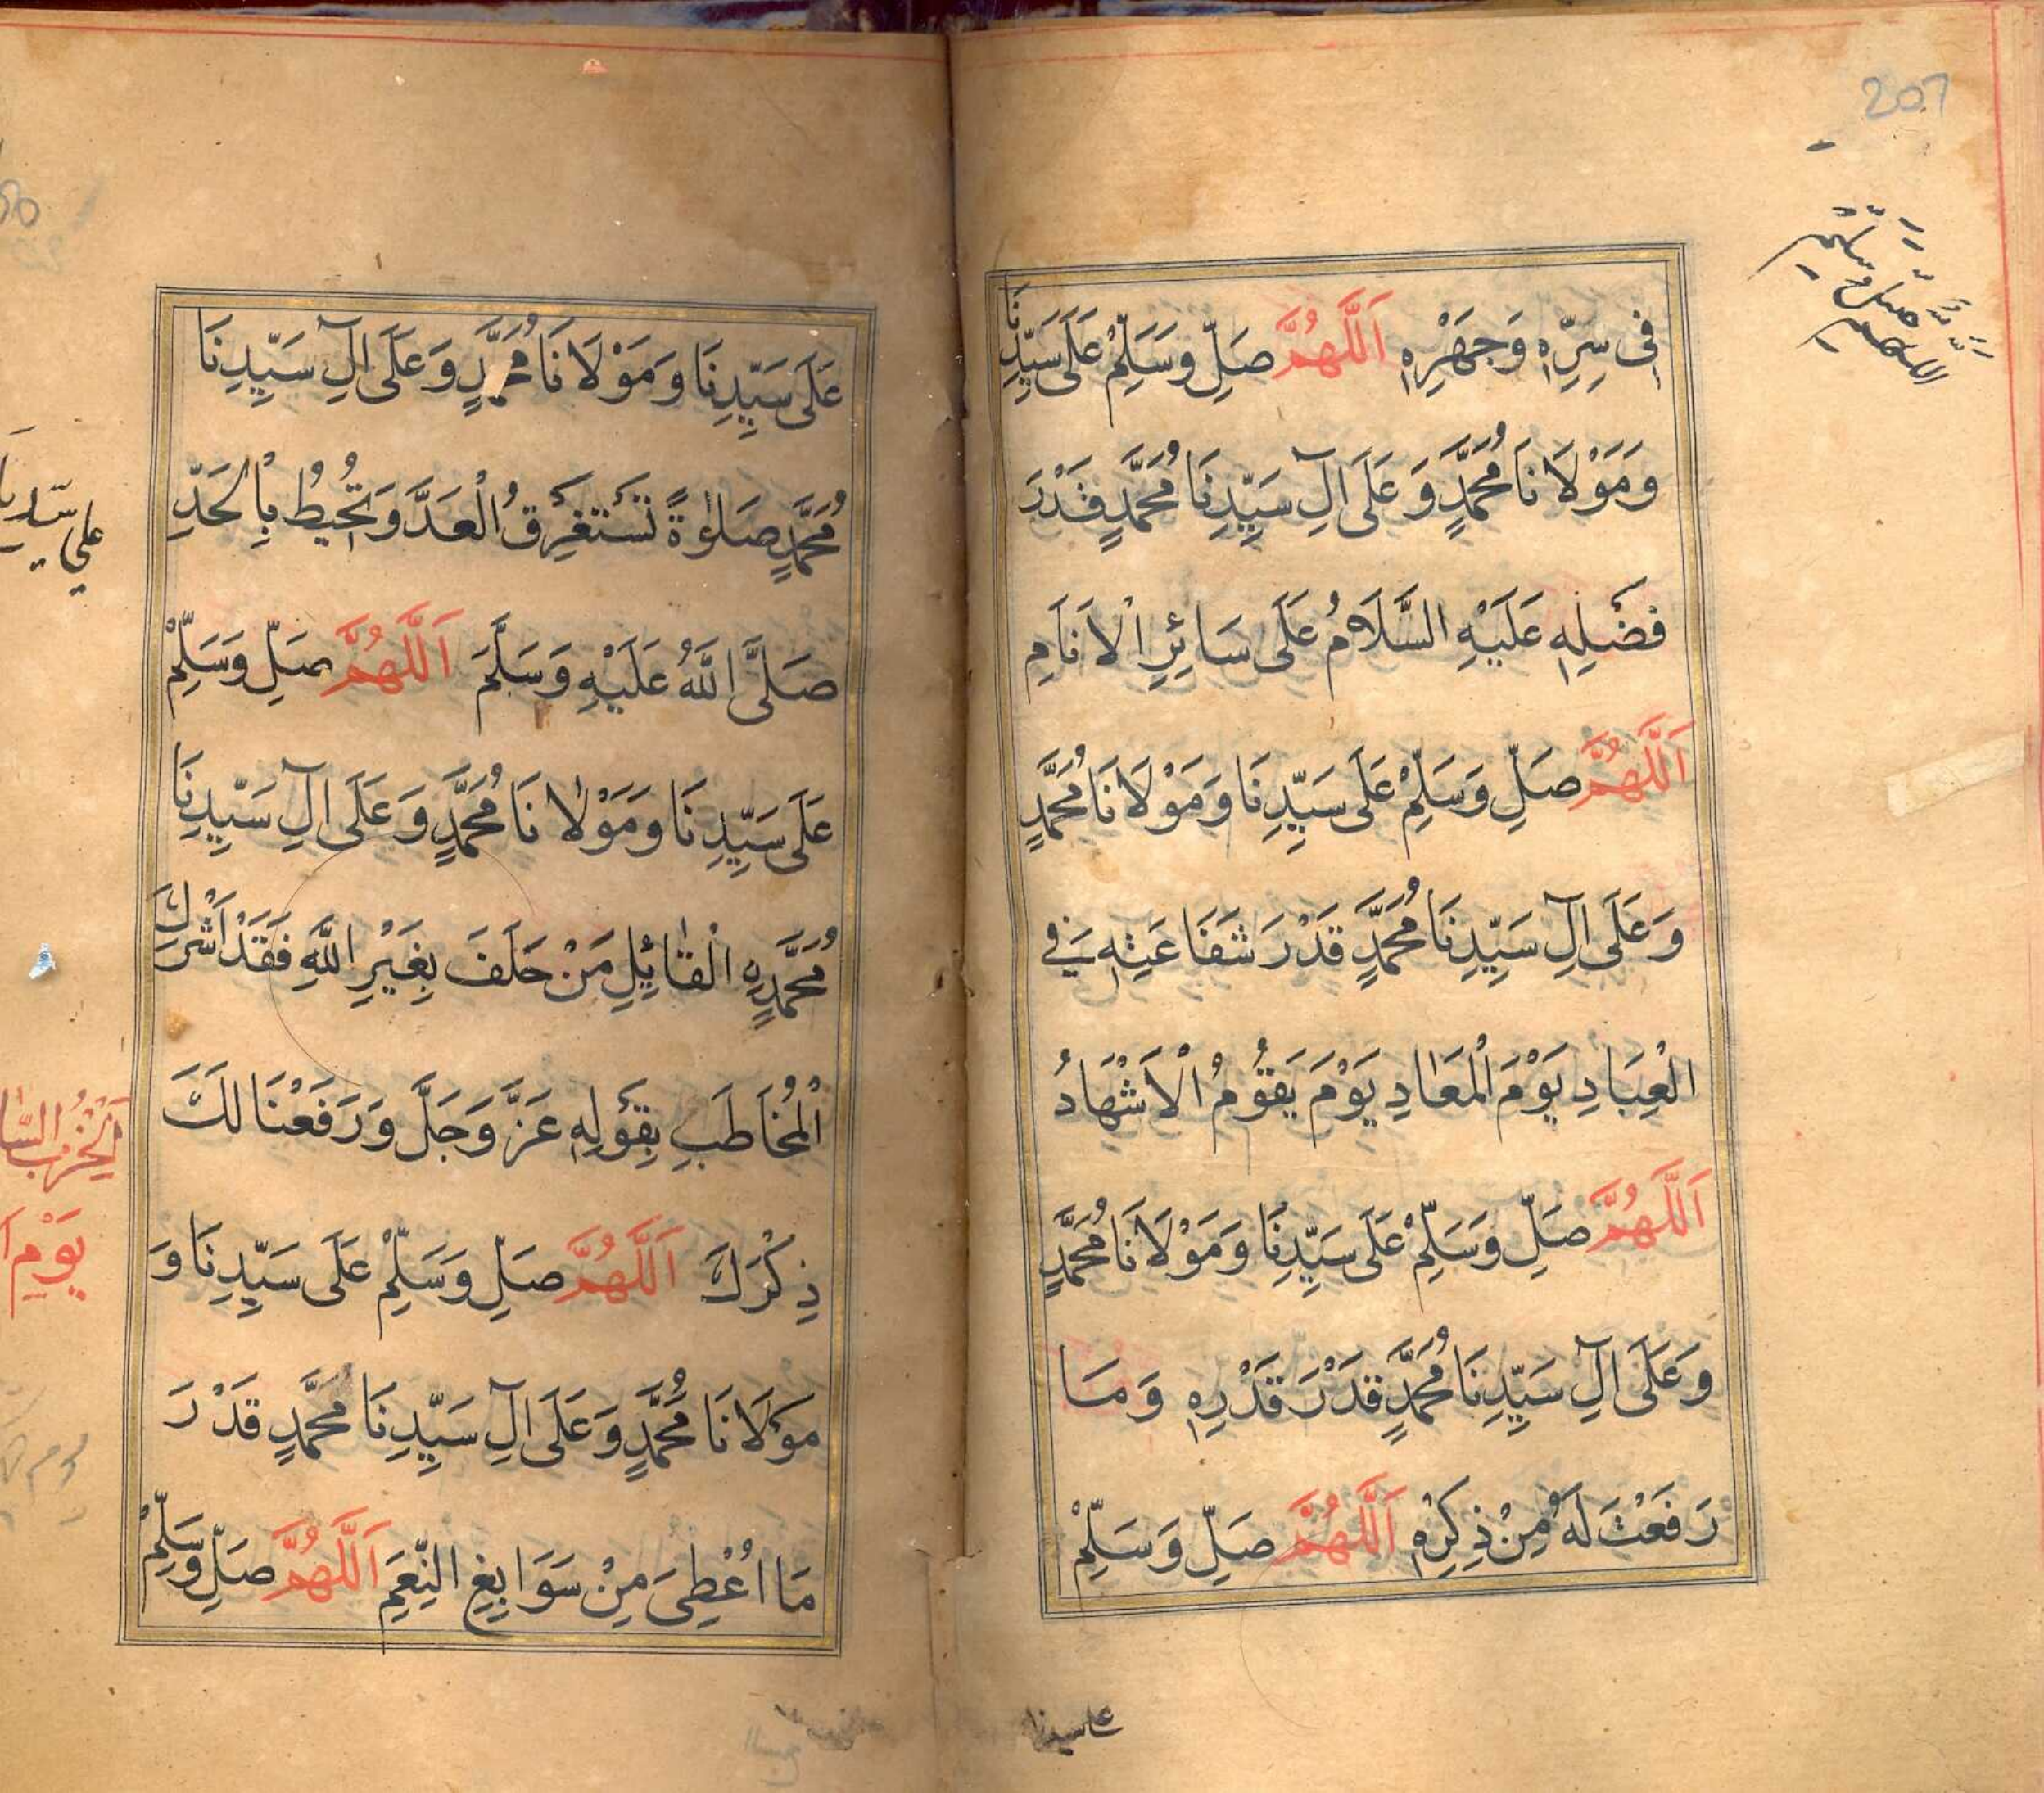 207
اَللّٰهُمَّ صَلِّ وَسَلِّمْ
فِی سِرِّهٖ وَجَهْرِهٖ اَللّٰهُمَّ صَلِّ وَسَلِّمْ عَلَی سَيِّدِنَا
وَمَوْلَانَا مُحَمَّدٍ وَعَلَی اٰلِ سَيِّدِنَا مُحَمَّدٍ قَدْرَ
فَضْلِهٖ عَلَيْهِ السَّلَامُ عَلَی سَائِرِ الْاَنَامِ
اَللّٰهُمَّ صَلِّ وَسَلِّمْ عَلَی سَيِّدِنَا وَمَوْلَانَا مُحَمَّدٍ
وَعَلَی اٰلِ سَيِّدِنَا مُحَمَّدٍ قَدْرَ شَفَاعَتِهٖ فِی
الْعِبَادِ يَوْمَ الْمَعَادِ يَوْمَ يَقُوْمُ الْاَشْهَادُ
اَللّٰهُمَّ صَلِّ وَسَلِّمْ عَلَی سَيِّدِنَا وَمَوْلَانَا مُحَمَّدٍ
وَعَلَی اٰلِ سَيِّدِنَا مُحَمَّدٍ قَدْرَ قَدْرِهٖ وَمَا
رَفَعْتَ لَهٗ مِنْ ذِكْرِهٖ اَللّٰهُمَّ صَلِّ وَسَلِّمْ
علی سیدنا
عَلَی سَيِّدِنَا وَمَوْلَانَا مُحَمَّدٍ وَعَلَی اٰلِ سَيِّدِنَا
مُحَمَّدٍ صَلٰوةً تَسْتَغْرِقُ الْعَدَّ وَتُحِيْطُ بِالْحَدِّ
صَلَّی اللّٰهُ عَلَيْهِ وَسَلَّمَ اَللّٰهُمَّ صَلِّ وَسَلِّمْ
عَلَی سَيِّدِنَا وَمَوْلَانَا مُحَمَّدٍ وَعَلَی اٰلِ سَيِّدِنَا
مُحَمَّدِهِ الْقٰائِلِ مَنْ حَلَفَ بِغَيْرِ اللّٰهِ فَقَدْ اَشْرَكَ
الْمُخَاطَبِ بِقَوْلِهٖ عَزَّ وَجَلَّ وَرَفَعْنَا لَكَ
ذِكْرَكَ اَللّٰهُمَّ صَلِّ وَسَلِّمْ عَلَی سَيِّدِنَا وَ
مَوْلَانَا مُحَمَّدٍ وَعَلَی اٰلِ سَيِّدِنَا مُحَمَّدٍ قَدْرَ
مَا اُعْطِیَ مِنْ سَوَابِغِ النِّعَمِ اَللّٰهُمَّ صَلِّ وَسَلِّمْ
يَوْم